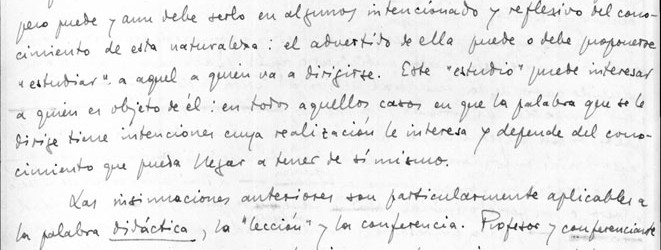 pero puede y aun debe serlo en algunos intencionado y reflexivo del cono-
cimiento de esta naturaleza: el advertido de ella puede o debe proponerse
"estudiar" a aquel a quien va a dirigirse. Este "estudio" puede interesar
a quien es objeto de él: en todos aquellos casos en que la palabra que se le
dirige tiene intenciones cuya realización le interesa y depende del cono-
cimiento que pueda llegar a tener de sí mismo.
Las insinuaciones anteriores son particularmente aplicables a
la palabra didáctica, la "lección" y la conferencia. Profesor y conferenciante